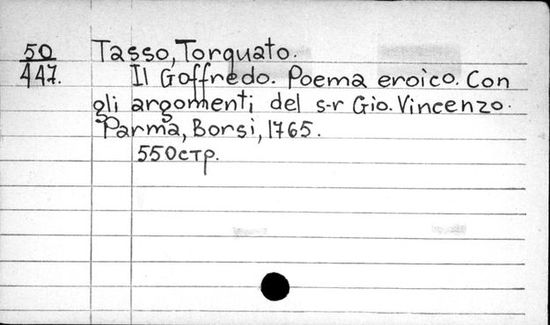 50
447.
Tasso, Torquato.
Il Goffredo. Poema eroico. Con
gli argomenti del s-r Gio. Vincenzo.
Parma, Borsi, 1765.
550стр.